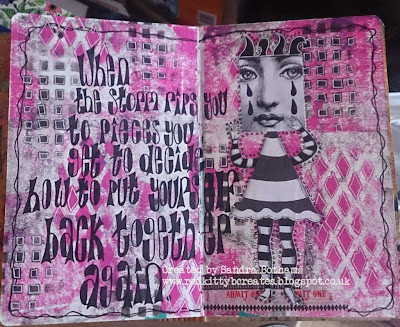 When
the storm rips you
to pieces you
get to decide
how to put yourself
back together
again
Created by Sandra Botham
www.redkittybcreates.blogspot.co.uk
ADMIT ONE